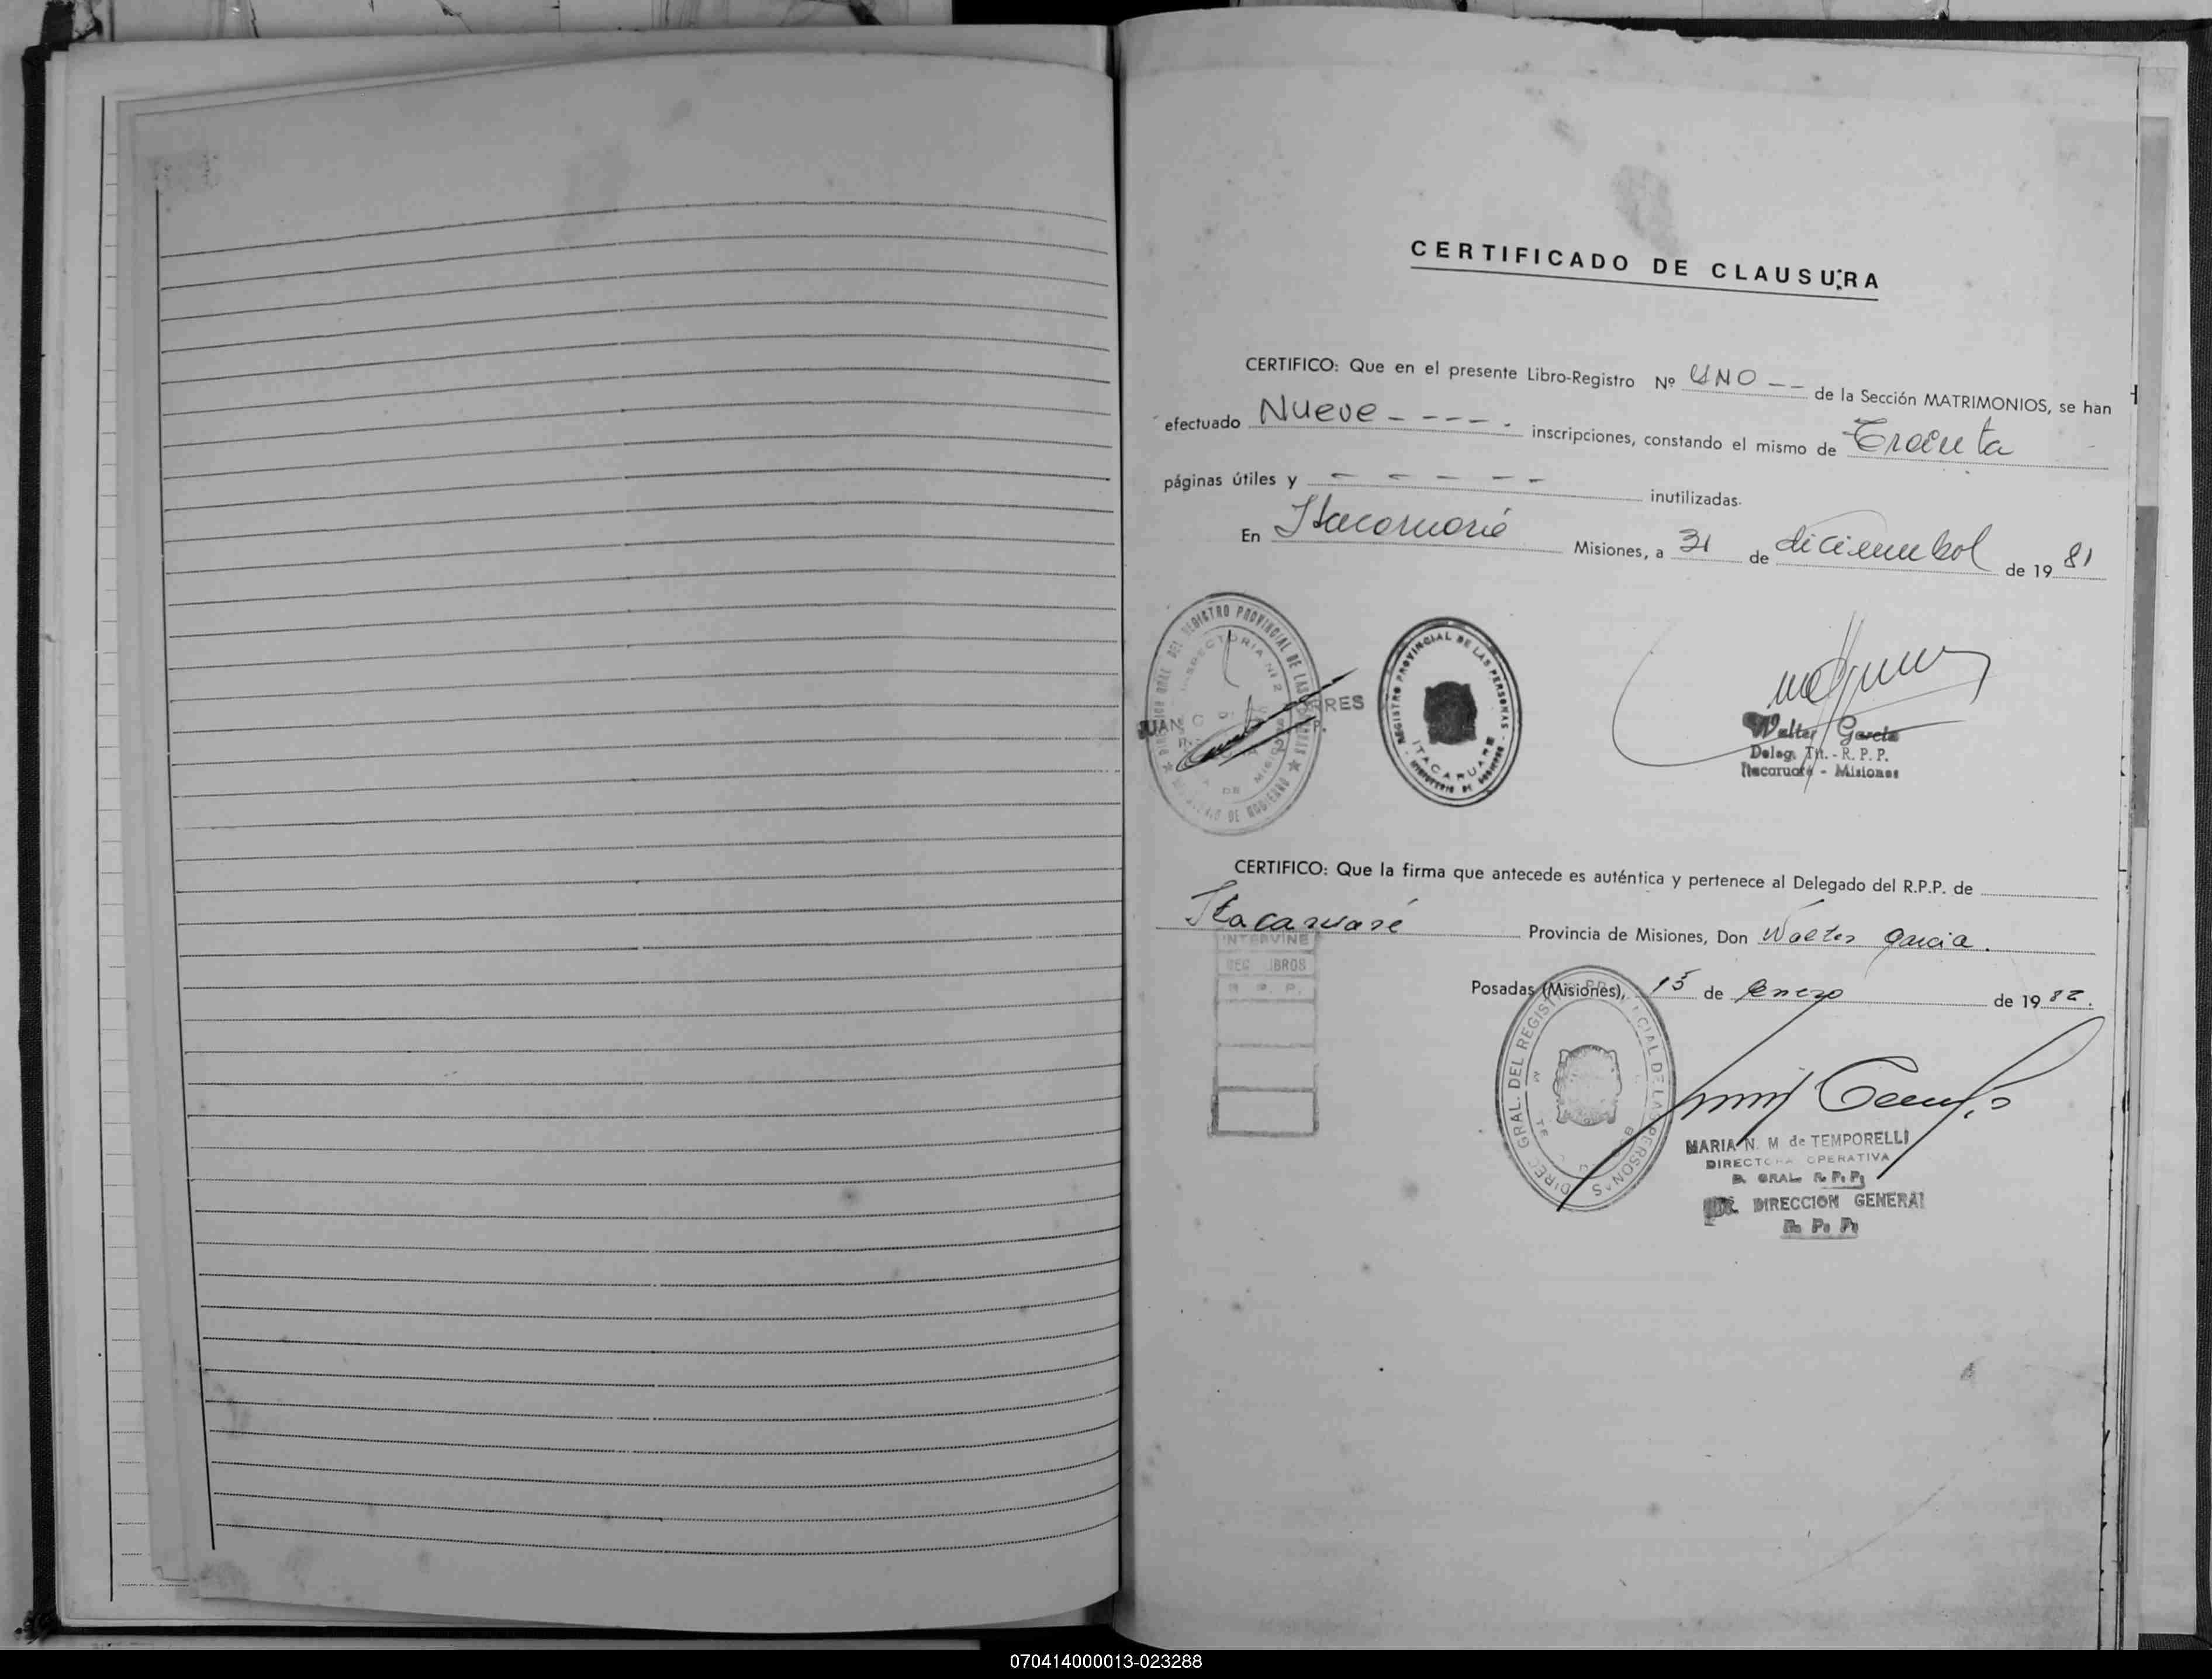 CERTIFICADO DE CLAUSURA
CERTIFICO: Que en el presente Libro-Registro Nº UNO -- de la Sección MATRIMONIOS, se han
efectuado Nueve - - - - - . inscripciones, constando el mismo de Treinta
páginas útiles y - - - - - inutilizadas.
En Itacaruaré Misiones, a 31 de diciembre de 1981
DEL REGISTRO PROVINCIAL DE LAS
INSPECTORIA Nº 2
JUAN
DE GOBIERNO
REGISTRO PROVINCIAL DE LAS PERSONAS
ITACARUARE
MINISTERIO DE GOBIERNO
Walter García
Deleg. Tit. - R. P. P.
Itacaruaré - Misiones
CERTIFICO: Que la firma que antecede es auténtica y pertenece al Delegado del R.P.P. de
Itacaruaré Provincia de Misiones, Don Walter Garcia.
INTERVINE
LIBROS
R. P. P.
Posadas (Misiones), 15 de Enero de 1982.
DIREC GRAL. DEL REGISTRO PROVINCIAL DE LAS PERSONAS
MARIA N. M. de TEMPORELLI
DIRECTORA OPERATIVA
D. GRAL. R. P. P.
DIRECCION GENERAL
R. P. P.
070414000013-023288